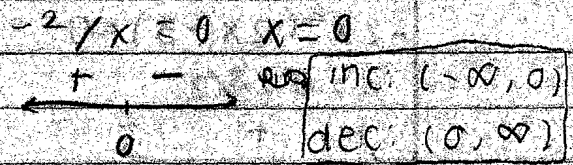 -2/x = 0 x = 0
+ - inc: (-∞, 0)
0 dec: (0, ∞)